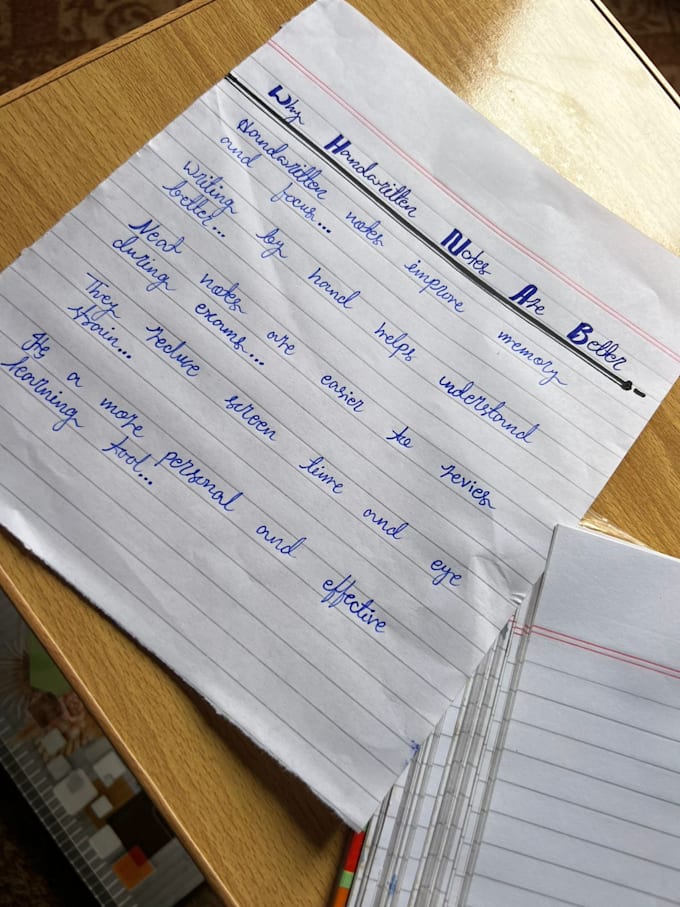 Why Handwritten Notes Are Better
Handwritten notes improve memory
and focus...
Writing by hand helps understand
better...
Neat notes are easier to revies
during exams...
They reduce screen time and eye
strain...
Its a more personal and effective
learning tool...